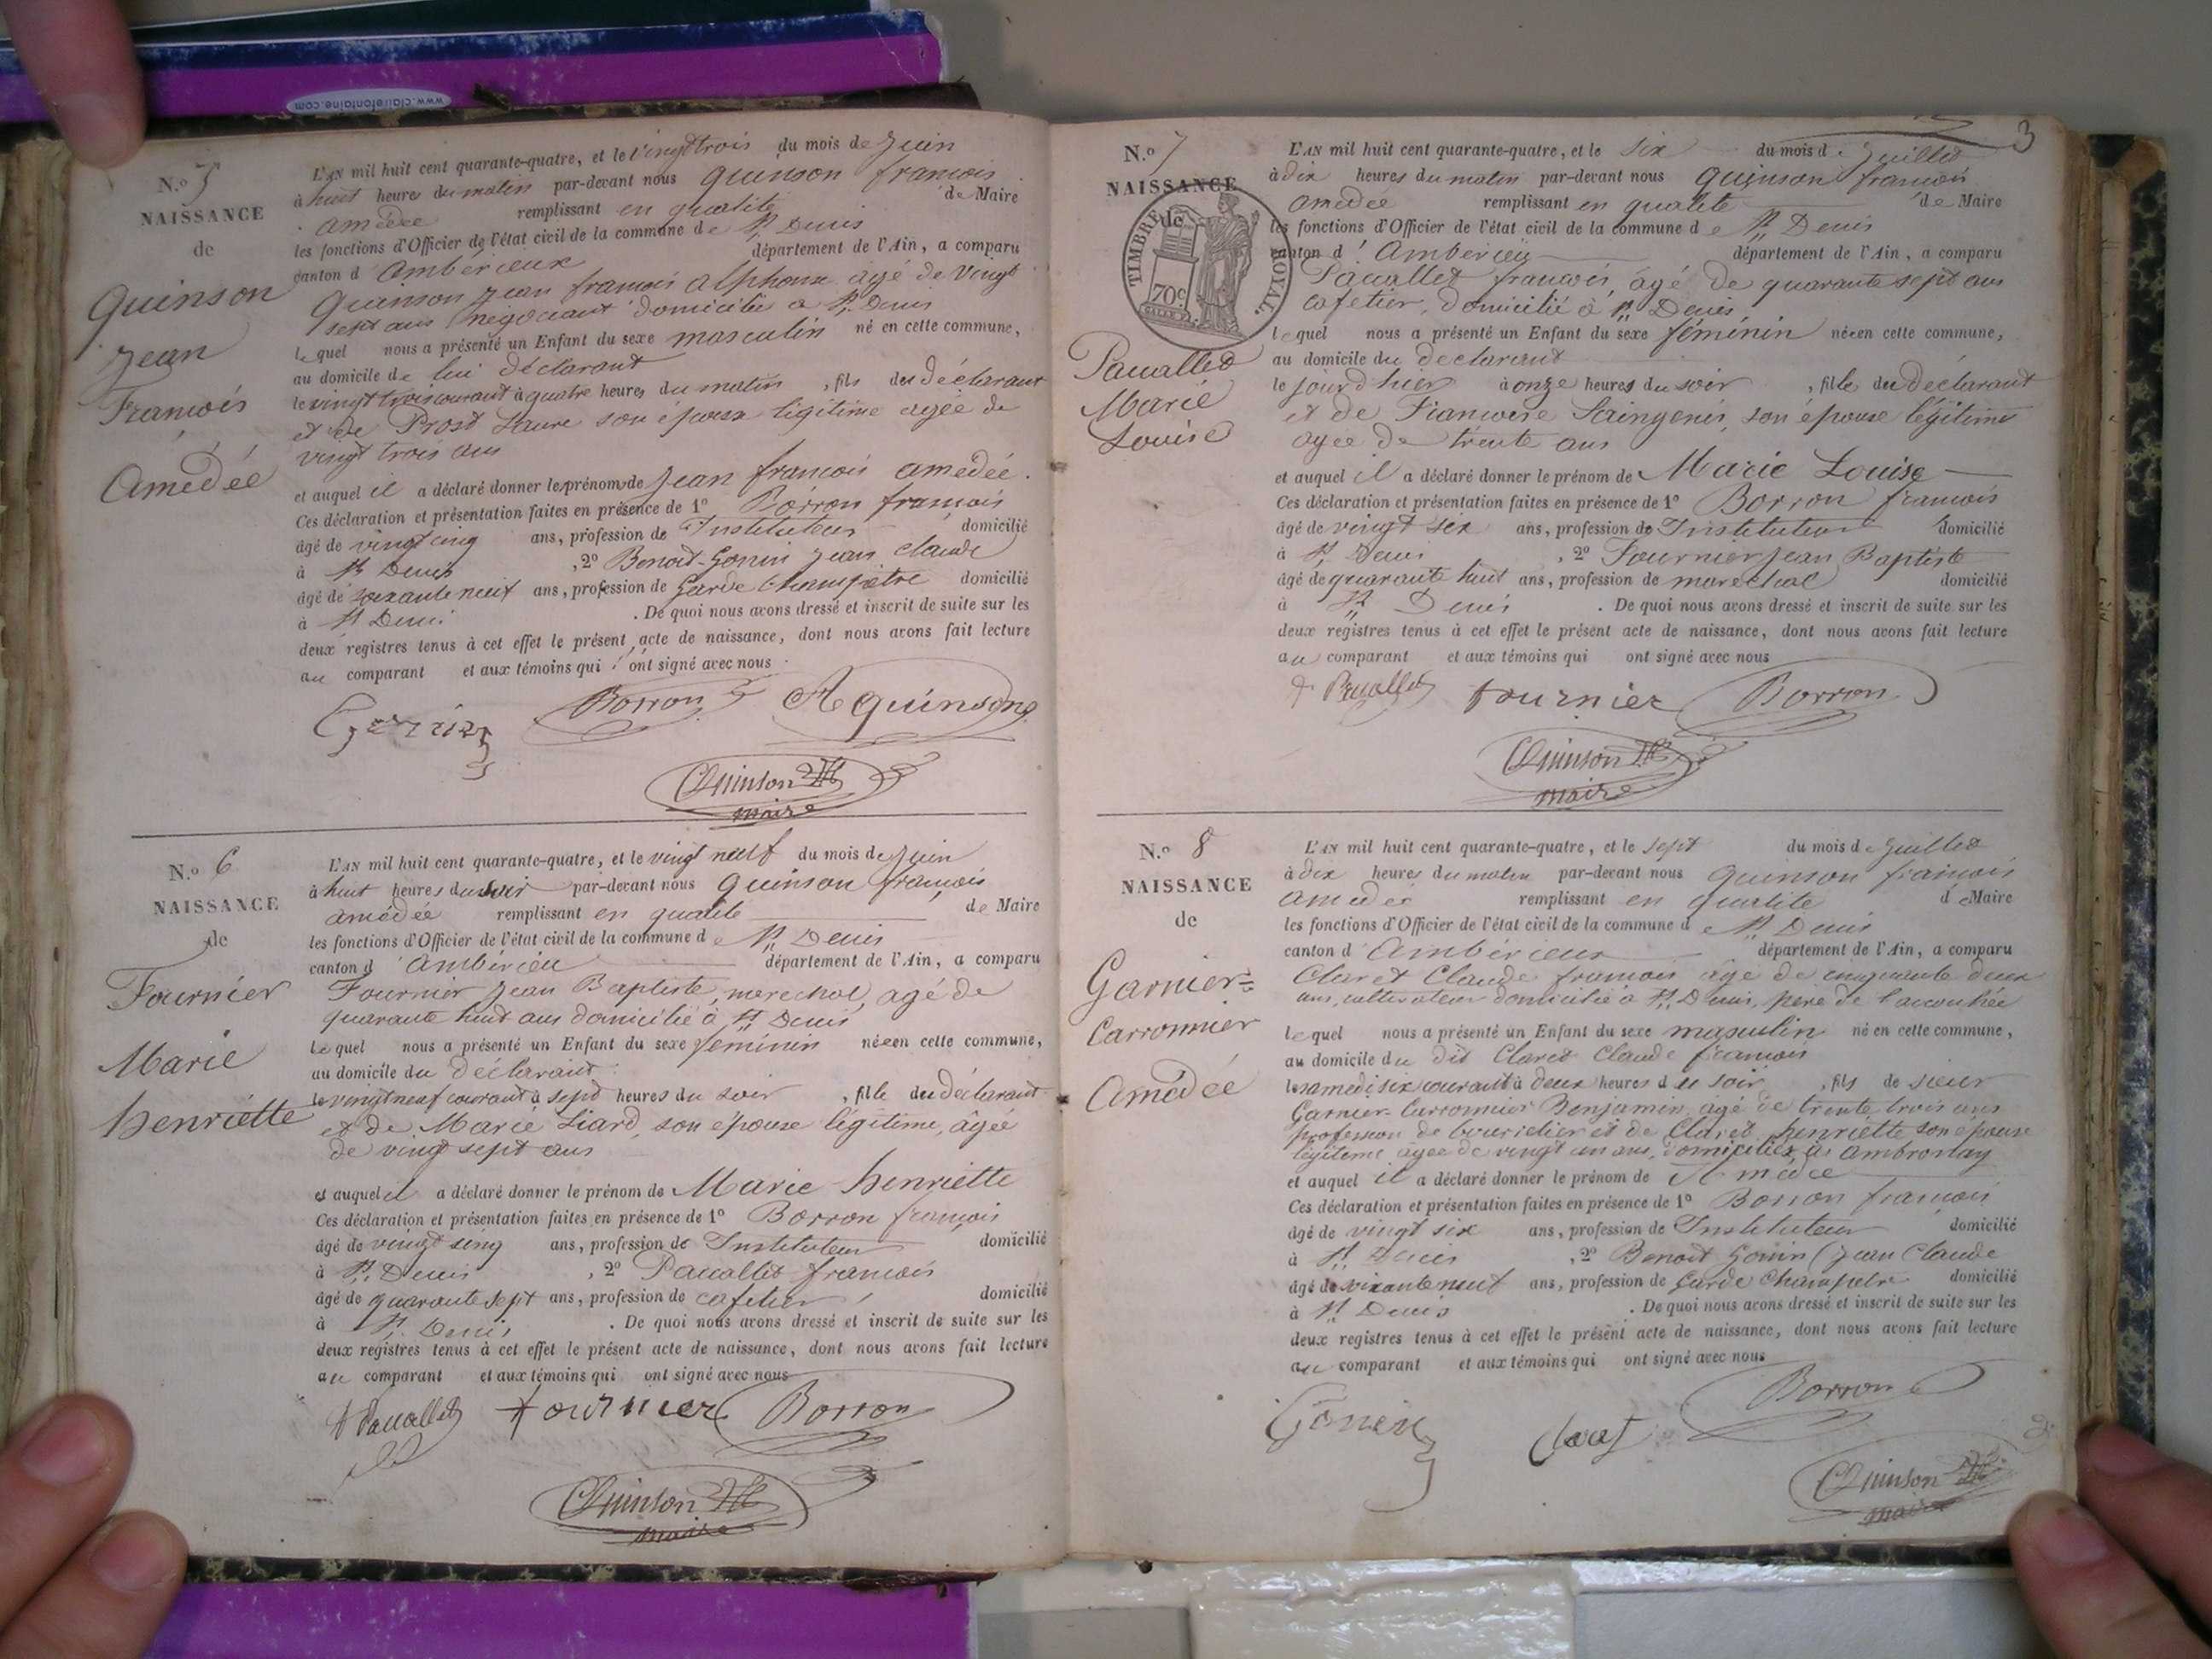 www.clairefontaine.com
N.º 5
NAISSANCE
de
Quinson
Jean
François
Amédée
L'AN mil huit cent quarante-quatre, et le vingt trois du mois de Juin
à huit heure du matin par-devant nous Quinson françois
amédée remplissant en qualité de Maire
les fonctions d'Officier de l'état civil de la commune de St Denis
canton d'Ambérieux département de l'Ain, a comparu
Quinson Jean francois alphonse agé de vingt
sept ans négociant domicilié a St Denis
lequel nous a présenté un Enfant du sexe masculin né en cette commune,
au domicile de lui déclarant
le vingt trois courant à quatre heures du matin, fils du déclarant
et de Prost Laure son épouse légitime agée de
vingt trois ans
et auquel il a déclaré donner le prénom de Jean francois amédée.
Ces déclaration et présentation faites en présence de 1º Borron francois
âgé de vingt cinq ans, profession de Instituteur domicilié
à St Denis, 2º Benoit-Gonin Jean claude
âgé de soixante neuf ans, profession de Garde Champêtre domicilié
à St Denis. De quoi nous avons dressé et inscrit de suite sur les
deux registres tenus à cet effet le présent acte de naissance, dont nous avons fait lecture
au comparant et aux témoins qui ont signé avec nous
Borron A Quinson
Quinson
maire
N.º 6
NAISSANCE
de
Fournier
Marie
henriette
L'AN mil huit cent quarante-quatre, et le vingt neuf du mois de Juin
à huit heures du soir par-devant nous Quinson françois
amédée remplissant en qualité de Maire
les fonctions d'Officier de l'état civil de la commune de St Denis
canton d'Ambérieu département de l'Ain, a comparu
Fournier Jean Baptiste, marechal, agé de
quarante huit ans domicilié à St Denis
lequel nous a présenté un Enfant du sexe féminin née en cette commune,
au domicile du déclarant
le vingt neuf courant à sept heures du soir, fille du déclarant
et de Marie Liard, son épouse légitime, âgée
de vingt sept ans
et auquel il a déclaré donner le prénom de Marie henriette
Ces déclaration et présentation faites en présence de 1º Borron françois
âgé de vingt sinq ans, profession de Instituteur domicilié
à St Denis, 2º Pacallet francois
âgé de quarante sept ans, profession de cafetier domicilié
à St Denis. De quoi nous avons dressé et inscrit de suite sur les
deux registres tenus à cet effet le présent acte de naissance, dont nous avons fait lecture
au comparant et aux témoins qui ont signé avec nous
Pacallet fournier Borron
Quinson
maire
3
N.º 7
NAISSANCE
de
TIMBRE ROYAL.
70c
Pacallet
Marie
Louise
L'AN mil huit cent quarante-quatre, et le six du mois de Juillet
à dix heures du matin par-devant nous Quinson francois
amédée remplissant en qualité de Maire
les fonctions d'Officier de l'état civil de la commune de St Denis
canton d'Ambérieu département de l'Ain, a comparu
Pacallet francois, âgé de quarante sept ans
cafetier, domicilié à St Denis
lequel nous a présenté un Enfant du sexe féminin née en cette commune,
au domicile du déclarant
le jourd'hier à onze heures du soir, fille du déclarant
et de Francoise Saingenis, son épouse légitime
agée de trente ans
et auquel il a déclaré donner le prénom de Marie Louise
Ces déclaration et présentation faites en présence de 1º Borron francois
âgé de vingt six ans, profession de Instituteur domicilié
à St Denis, 2º Fournier Jean Baptiste
âgé de quarante huit ans, profession de marechal domicilié
à St Denis. De quoi nous avons dressé et inscrit de suite sur les
deux registres tenus à cet effet le présent acte de naissance, dont nous avons fait lecture
au comparant et aux témoins qui ont signé avec nous
Pacallet fournier Borron
Quinson
maire
N.º 8
NAISSANCE
de
Garnier=
Carronnier
Amédée
L'AN mil huit cent quarante-quatre, et le sept du mois de Juillet
à dix heures du matin par-devant nous Quinson francois
Amédée remplissant en qualité de Maire
les fonctions d'Officier de l'état civil de la commune de St Denis
canton d'Ambérieux département de l'Ain, a comparu
Claret Claude francois âgé de cinquante deux
ans, cultivateur domicilié à St Denis, père de l'accouchée
lequel nous a présenté un Enfant du sexe masculin né en cette commune,
au domicile du dit Claret Claude francois
le samedi six courant à deux heures du soir, fils de sieur
Garnier-Carronnier Benjamin, âgé de trente trois ans
profession de bourrelier et de Claret henriette son épouse
légitime agée de vingt un ans, domiciliés à Ambronay
et auquel il a déclaré donner le prénom de Amédée
Ces déclaration et présentation faites en présence de 1º Borron francois
âgé de vingt six ans, profession de Instituteur domicilié
à St Denis, 2º Benoit Gonin (Jean Claude
âgé de soixante neuf ans, profession de Garde Champetre domicilié
à St Denis. De quoi nous avons dressé et inscrit de suite sur les
deux registres tenus à cet effet le présent acte de naissance, dont nous avons fait lecture
au comparant et aux témoins qui ont signé avec nous
Gonin Claret Borron
Quinson
maire